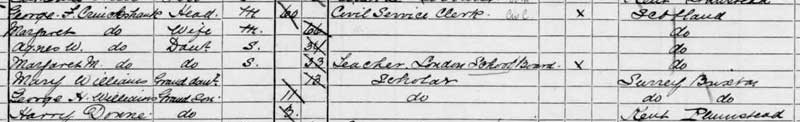 George F. Cruickshank Head M. 60 Civil Service Clerk. Civil x Scotland
Margaret do Wife M. 66 do
Agnes W. do Daut S. 34 do
Margaret M. do do S. 33 Teacher London School Board. x do
Mary Williams Grand daut. 13 Scholar Surrey Brixton
George H. Williams Grand Son 11 do do do
Harry Donne do 3. Kent Plumstead